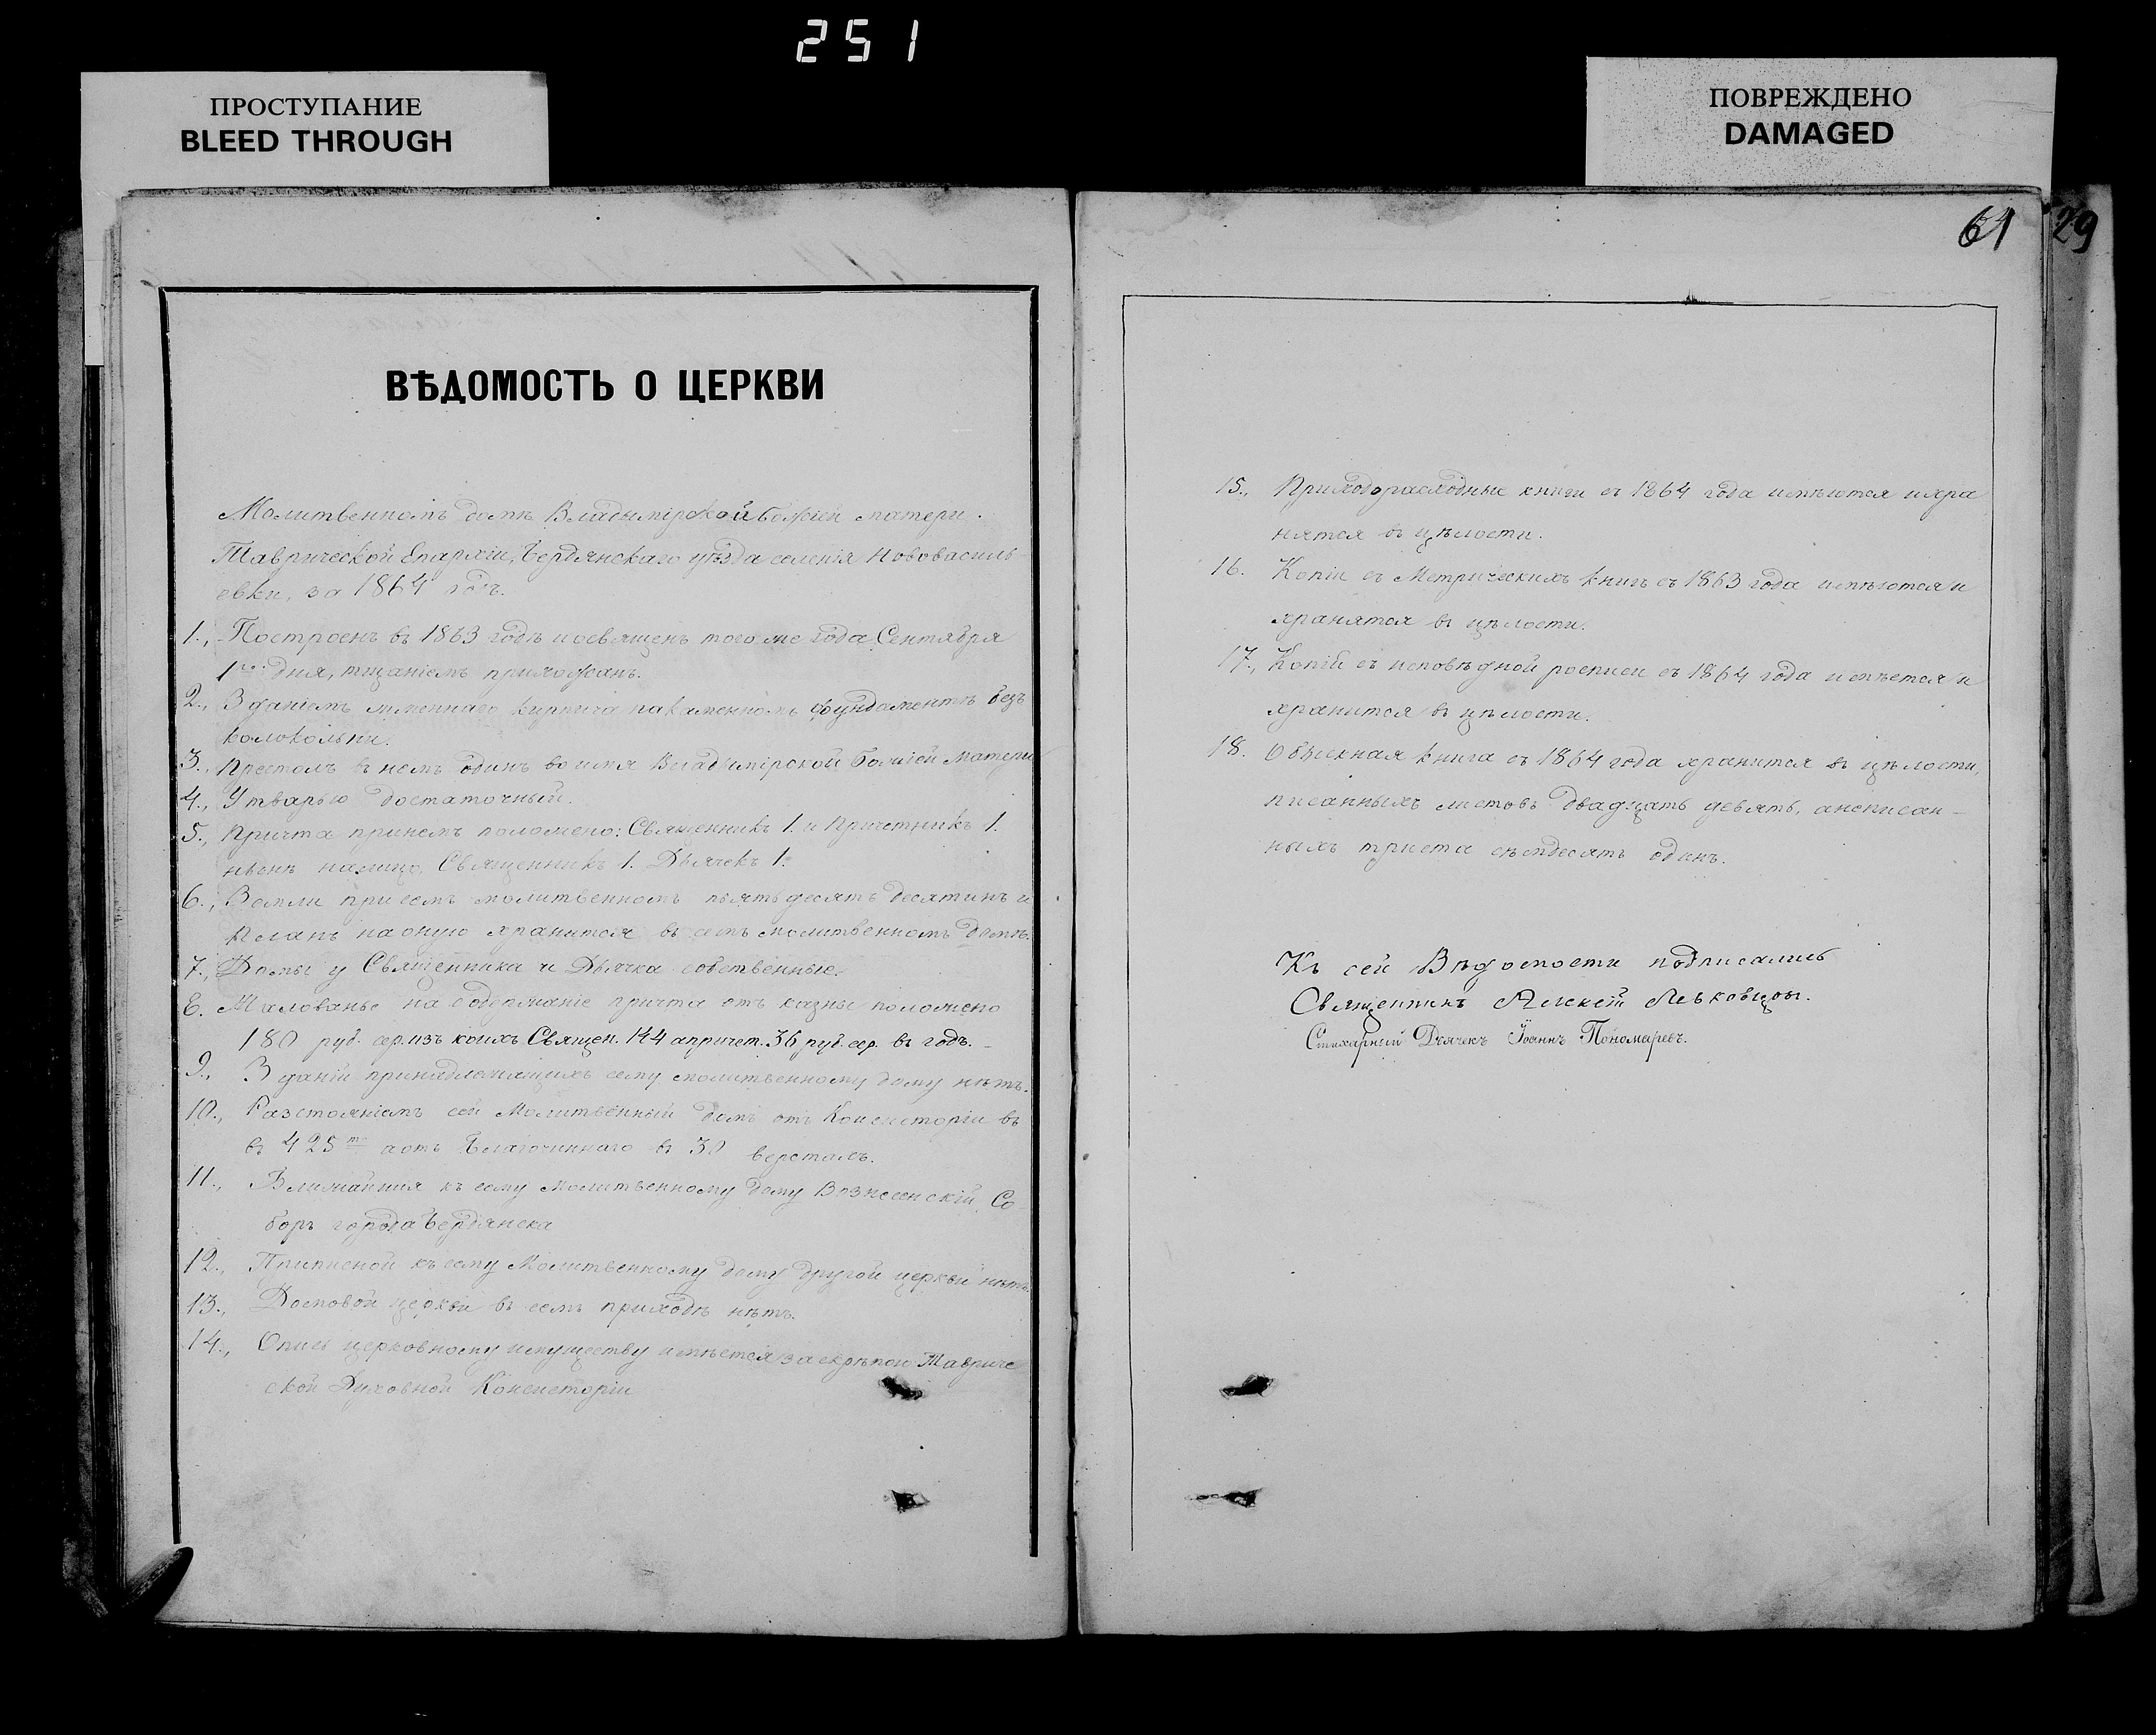 251
ПРОСТУПАНИЕ
BLEED THROUGH
ПОВРЕЖДЕНО
DAMAGED
61
29
ВѢДОМОСТЬ О ЦЕРКВИ
Молитвенномъ домѣ Владимірской Божіей матери.
Таврической Епархіи, Бердянскаго уѣзда селенія Нововасиль-
евки, за 1864 годъ.
1., Построенъ въ 1863 годѣ и освященъ того же года Сентября
1го дня, тщаніемъ прихожанъ.
2., Зданіемъ изженнаго кирпича на каменномъ фундаментѣ безъ
колокольни.
3., Престолъ въ немъ одинъ во имя Владимірской Божіей Матери
4., Утварью достаточный.
5., Причта при немъ положено: Священникъ 1. и Причетникъ 1.
нынѣ на лицо. Священникъ 1. Дьячекъ 1.
6., Земли при семъ молитвенномъ пятьдесятъ десятинъ и
планъ на оную хранится въ семъ молитвенномъ домѣ.
7., Домы у Священника и Дьячка собственные.
8. Жалованье на содержаніе причта отъ казны положено
180 руб. сер. изъ коихъ Священ. 144 а причет. 36 руб. сер. въ годъ.
9., Зданій принадлежащихъ сему молитвенному дому нѣтъ.
10., Разстояніемъ сей Молитвенный домъ отъ Консисторіи въ
въ 425ти а отъ Благочиннаго въ 30 верстахъ.
11., Ближайшия къ сему Молитвенному дому Вознесенскій Со
боръ города Бердянска
12., Приписной къ сему Молитвенному дому другой церкви нѣтъ.
13., Домовой церкви въ семъ приходѣ нѣтъ.
14., Опись церковному имуществу имѣется за скрѣпою Тавриче
ской Духовной Консисторіи
15., Приходорасходные книги съ 1864 года имѣются и хра
нятся въ цѣлости.
16. Копіи съ Метрическихъ книгъ съ 1863 года имѣются и
хранятся въ цѣлости.
17., Копіи съ исповѣдной росписи съ 1864 года имѣется и
хранится въ цѣлости.
18. Обыскная книга съ 1864 года хранится въ цѣлости,
писанныхъ листовъ двадцать девять, а неписан-
ныхъ триста семдесятъ одинъ.
Къ сей Вѣдомости подписались
Священникъ Алексѣй
Стихарный Дьячекъ Іоаннъ Пономаревъ.